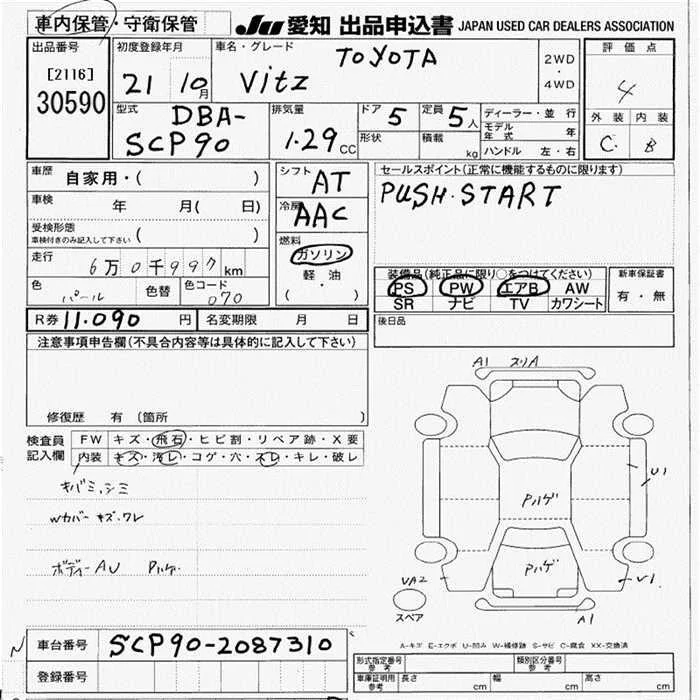 車内保管・守衛保管 JU 愛知 出品申込書 JAPAN USED CAR DEALERS ASSOCIATION
出品番号 初度登録年月 車名・グレード 評価点
[2116] TOYOTA 2WD
30590 21 10月 Vitz 4WD 4
型式 排気量 ドア 5 定員 5人 ディーラー・並行 外装 内装
DBA- モデル年式 年
SCP90 1.29CC 形状 積載 kg ハンドル 左・右 C B
車歴 自家用・( ) シフト AT セールスポイント(正常に機能するものに限ります)
車検 年 月( 日) 冷房 AAC PUSH・START
受検形態
車検付きのみ記入して下さい ( ) 燃料
走行 6万0千997km ガソリン 装備品(純正品に限り○をつけてください) 新車保証書
色 パール 色替 色コード 070 軽・油 PS PW エアB AW 有・無
( ) SR ナビ TV カワシート
R券 11.090円 名変期限 月 日 後日品
注意事項申告欄(不具合内容等は具体的に記入して下さい)
修復歴 有 (箇所 )
A1 スリA
検査員 FW キズ・飛石・ヒビ割・リペア跡・X要
記入欄 内装 キズ・汚レ・コゲ・穴・スレ・キレ・破レ
キバミ、シミ
Wカバー キズ、ワレ
ボディーAU Pハゲ
U1
Pハゲ
Pハゲ
VA2
V1
スペア
A1
A-キズ E-エクボ U-凹み W-補修跡 S-サビ C-腐食 XX-交換済
車台番号 SCP90-2087310
登録番号
形式指定番号 参考 類別区分番号 参考
車庫証明用 参考 長さ cm 幅 cm 高さ cm